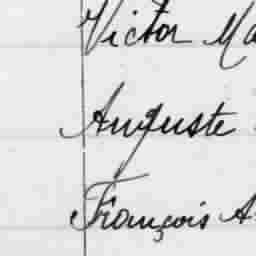 Victor Ma
Auguste
François A